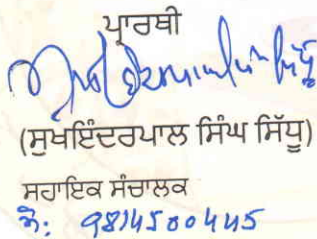 ਪ੍ਰਾਰਥੀ
(ਸੁਖਇੰਦਰਪਾਲ ਸਿੰਘ ਸਿੱਧੂ)
ਸਹਾਇਕ ਸੰਚਾਲਕ
ਮੋ: 9814500445